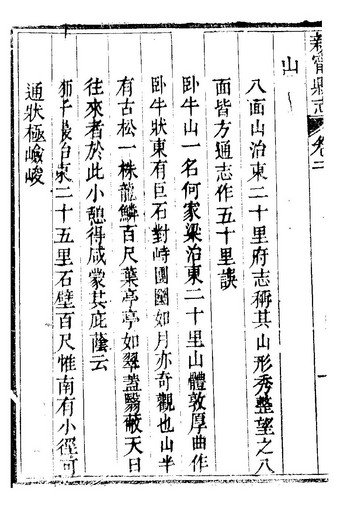 新寧縣志 卷二
山
八面山治東二十里府志稱其山形秀整望之八
面皆方通志作五十里誤
卧牛山一名何家梁治東二十里山體敦厚曲作
卧牛狀東有巨石對峙團圞如月亦奇觀也山半
有古松一株龍鱗百尺葉亭亭如翠蓋翳蔽天日
往來者於此小憩得咸蒙其庇蔭云
獅子巖治東二十五里石壁百尺惟南有小徑可
通狀極嶮峻